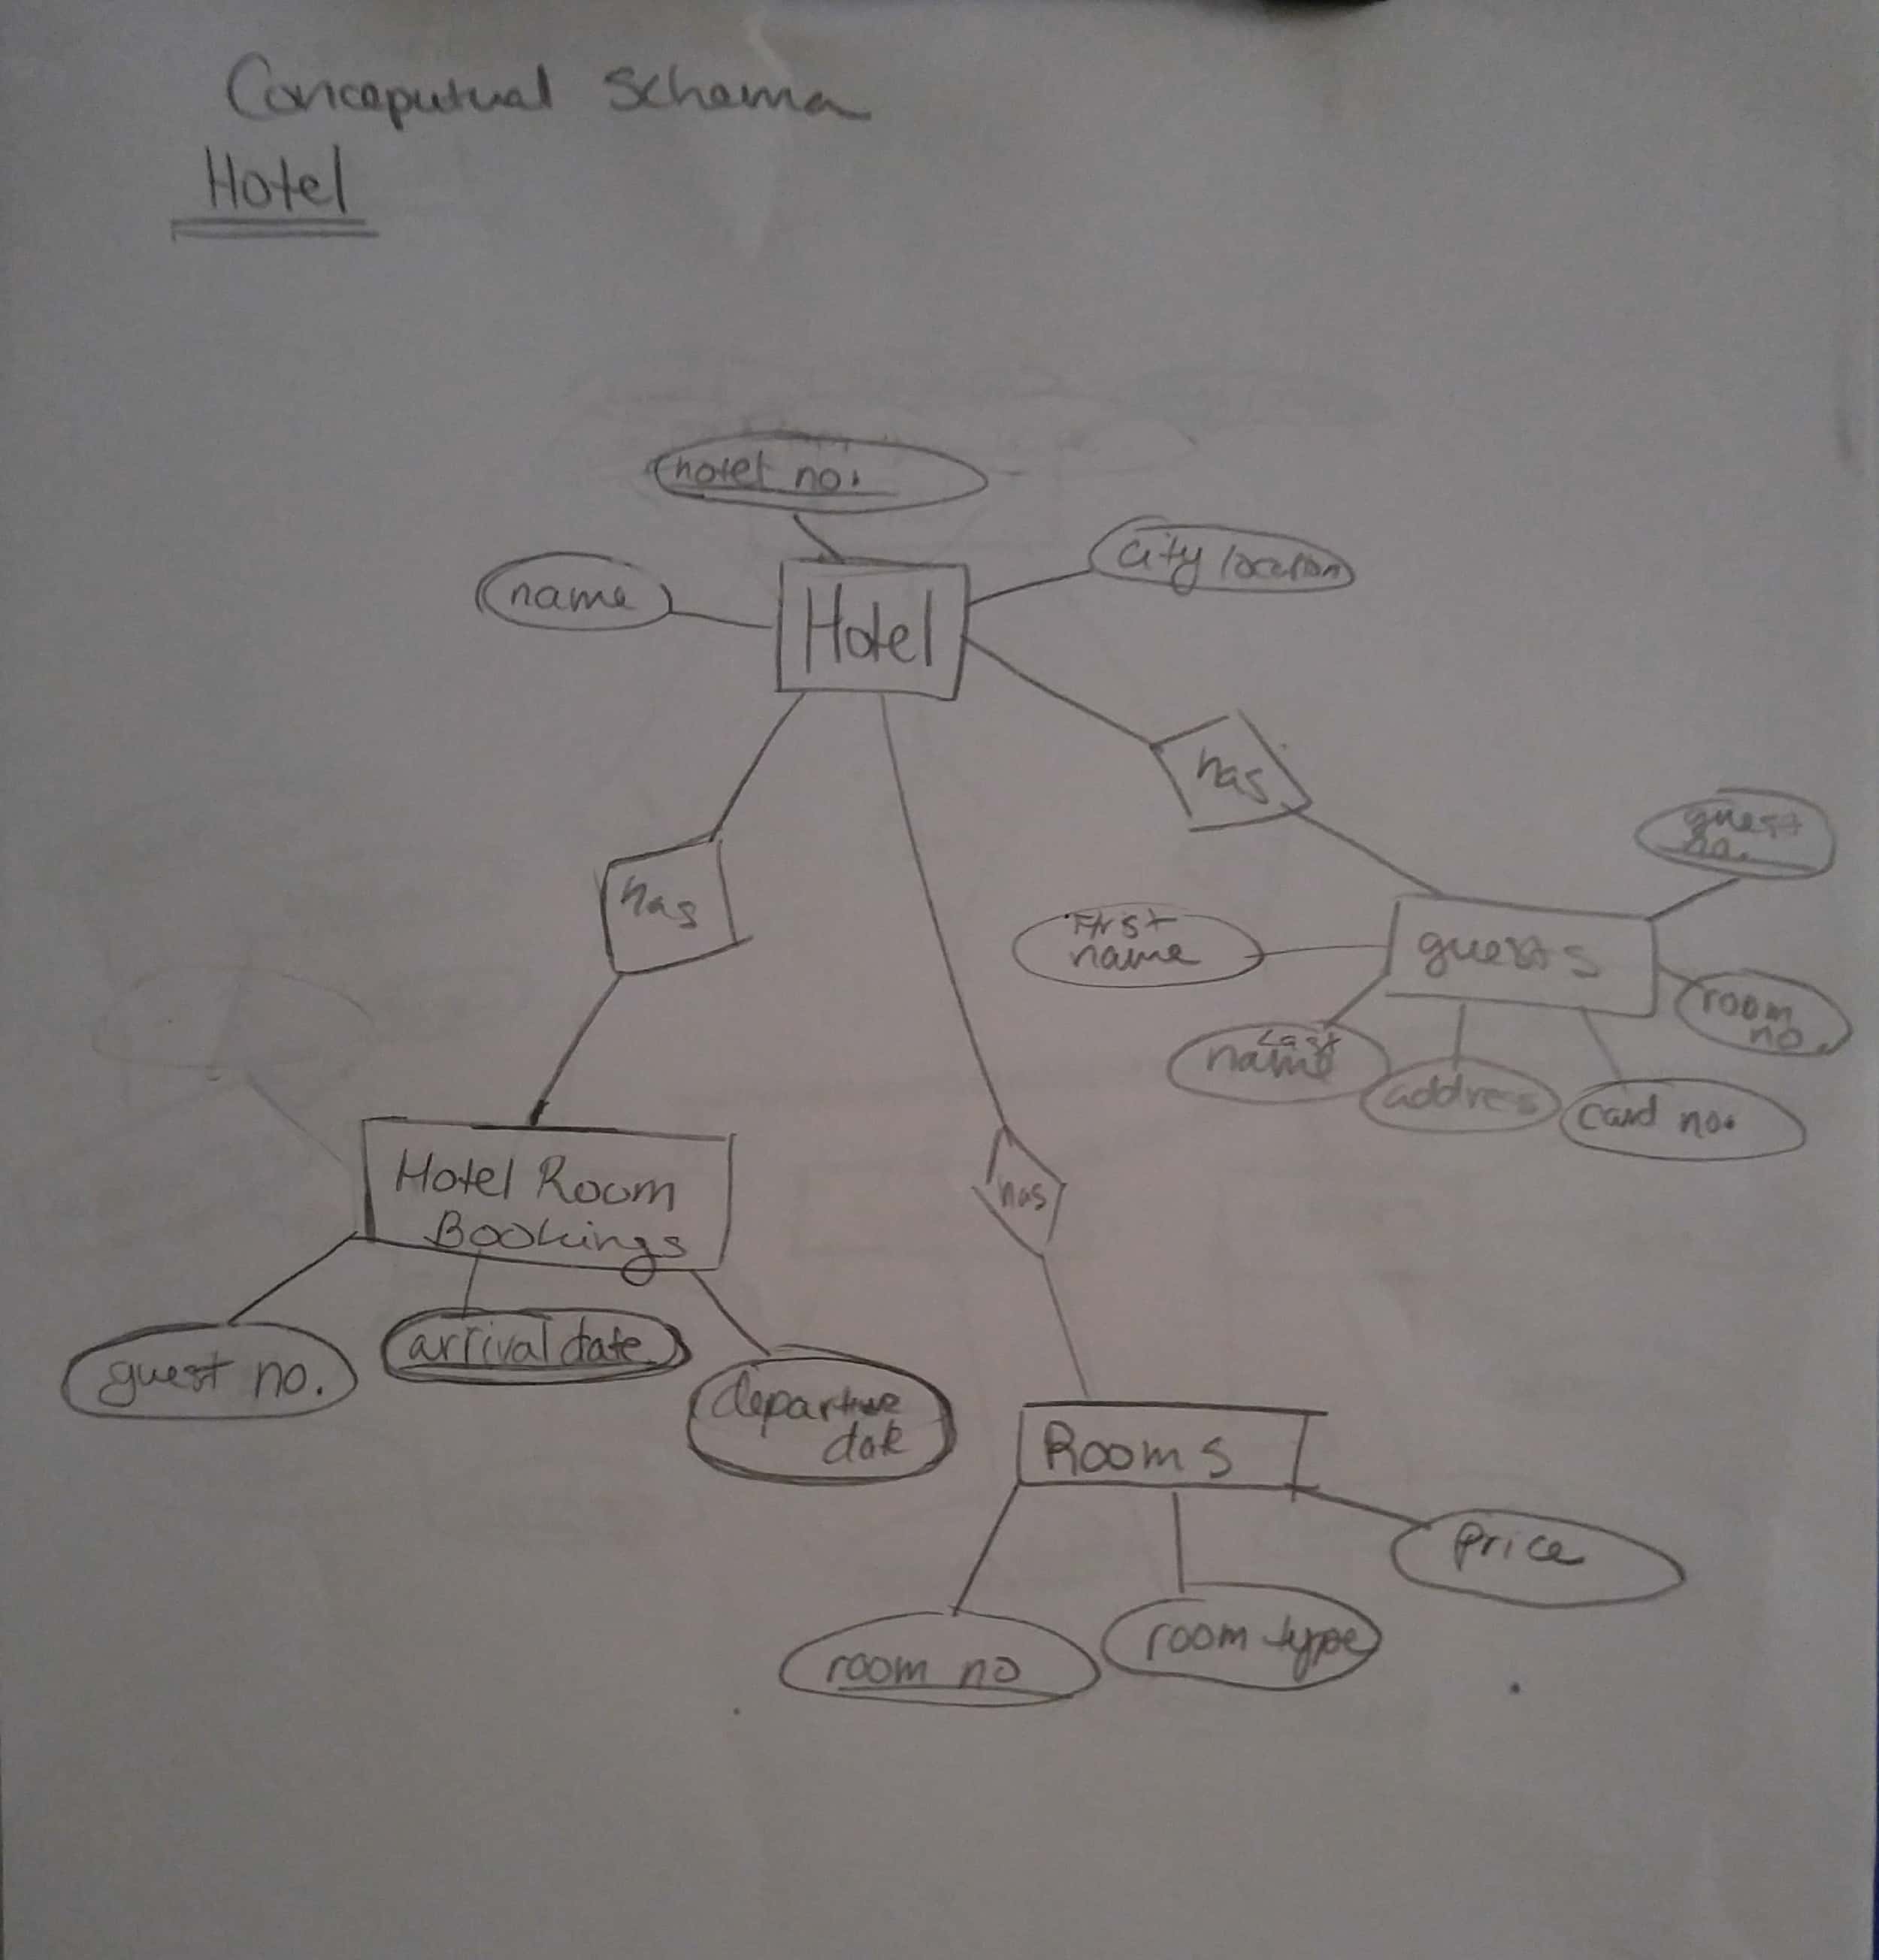 Conceputual Schema
Hotel
hotel no.
name
city location
Hotel
has
has
guest
no.
First
name
guests
room
no.
Last
name
addres
card no.
has
Hotel Room
Bookings
guest no.
arrival date
departure
date
Rooms
room no
room type
price